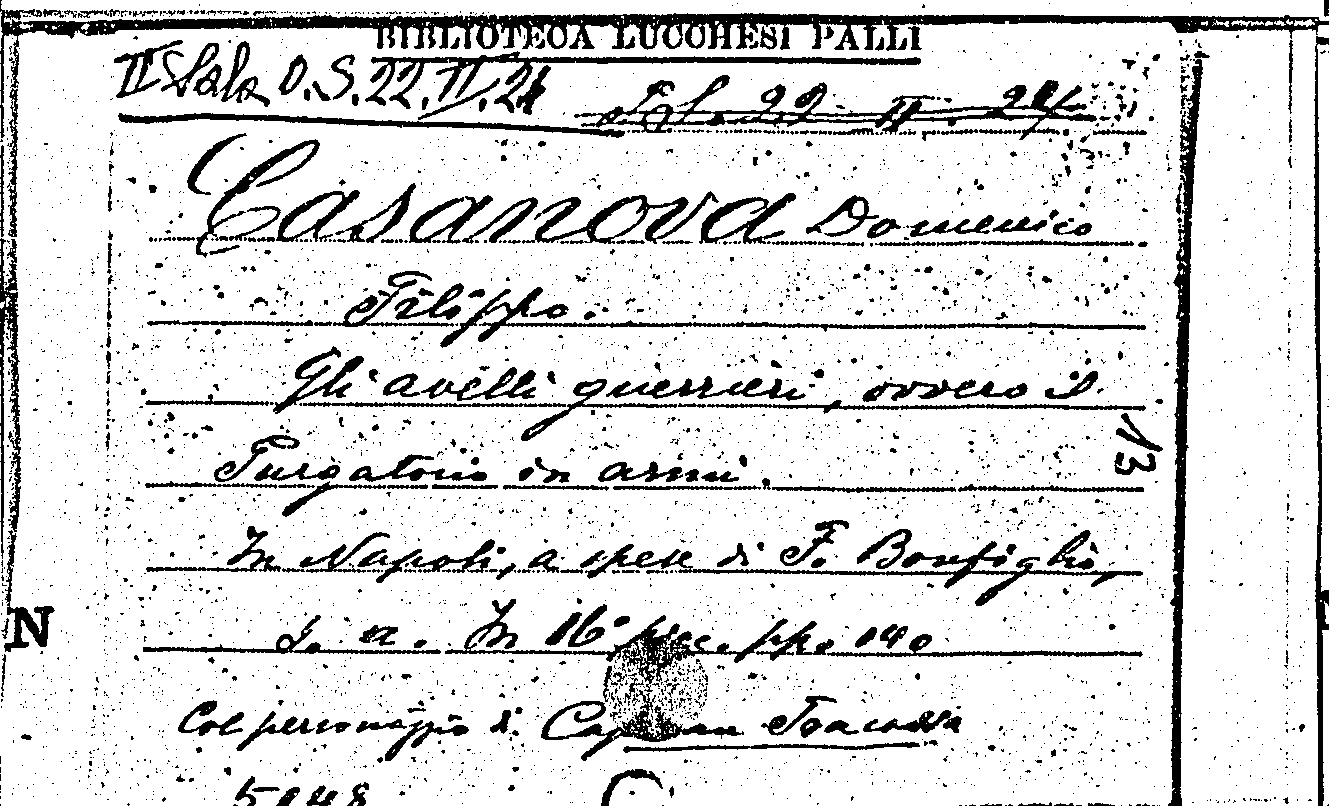 BIBLIOTECA LUCCHESI PALLI
II Sala O.S.22.II.21
22 II. 24
Casanova Domenico
Filippo.
Gli avelli guerrieri, ovvero il
Purgatorio in armi.
13
In Napoli, a spese di F. Bonfiglio,
s. a. In 16° picc. pp. 140
N
Col personaggio di Capitan